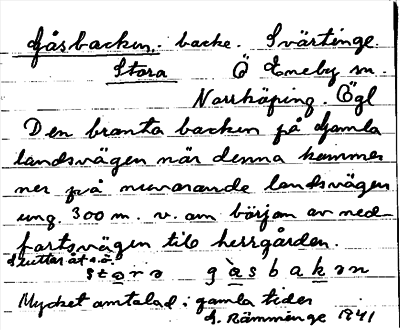 Gåsbacken. backe. Svärtinge.
Stora Ö Eneby sn.
Norrköping. Ögl
Den branta backen på Gamla
landsvägen när denna kommer
ner på nuvarande landsvägen
ung. 300 m. v. om början av ned-
fartsvägen till herrgården.
Sluttar åt s.ö.
stora gåsbakən
Mycket omtalad i gamla tider
G. Rämmenge 1941